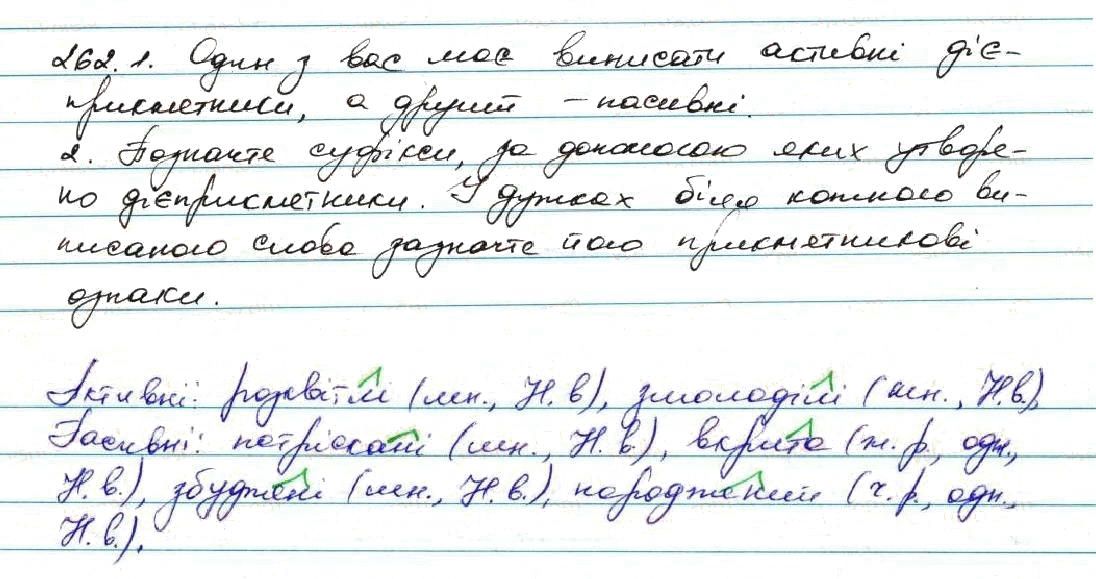 262.1. Один з вас має виписати активні діє-
прикметники, а другий – пасивні.
2. Позначте суфікси, за допомогою яких утворе-
но дієприкметники. У дужках біля кожного ви-
писаного слова зазначте його прикметникові
ознаки.
Активні: розквітлі (мн., Н.в), змолоділі (мн., Н.в),
Пасивні: потріскані (мн., Н.в.), вкрита (ж.р., одн.,
Н.в.), збуджені (мн., Н.в.), народжений (ч.р., одн.,
Н.в.).